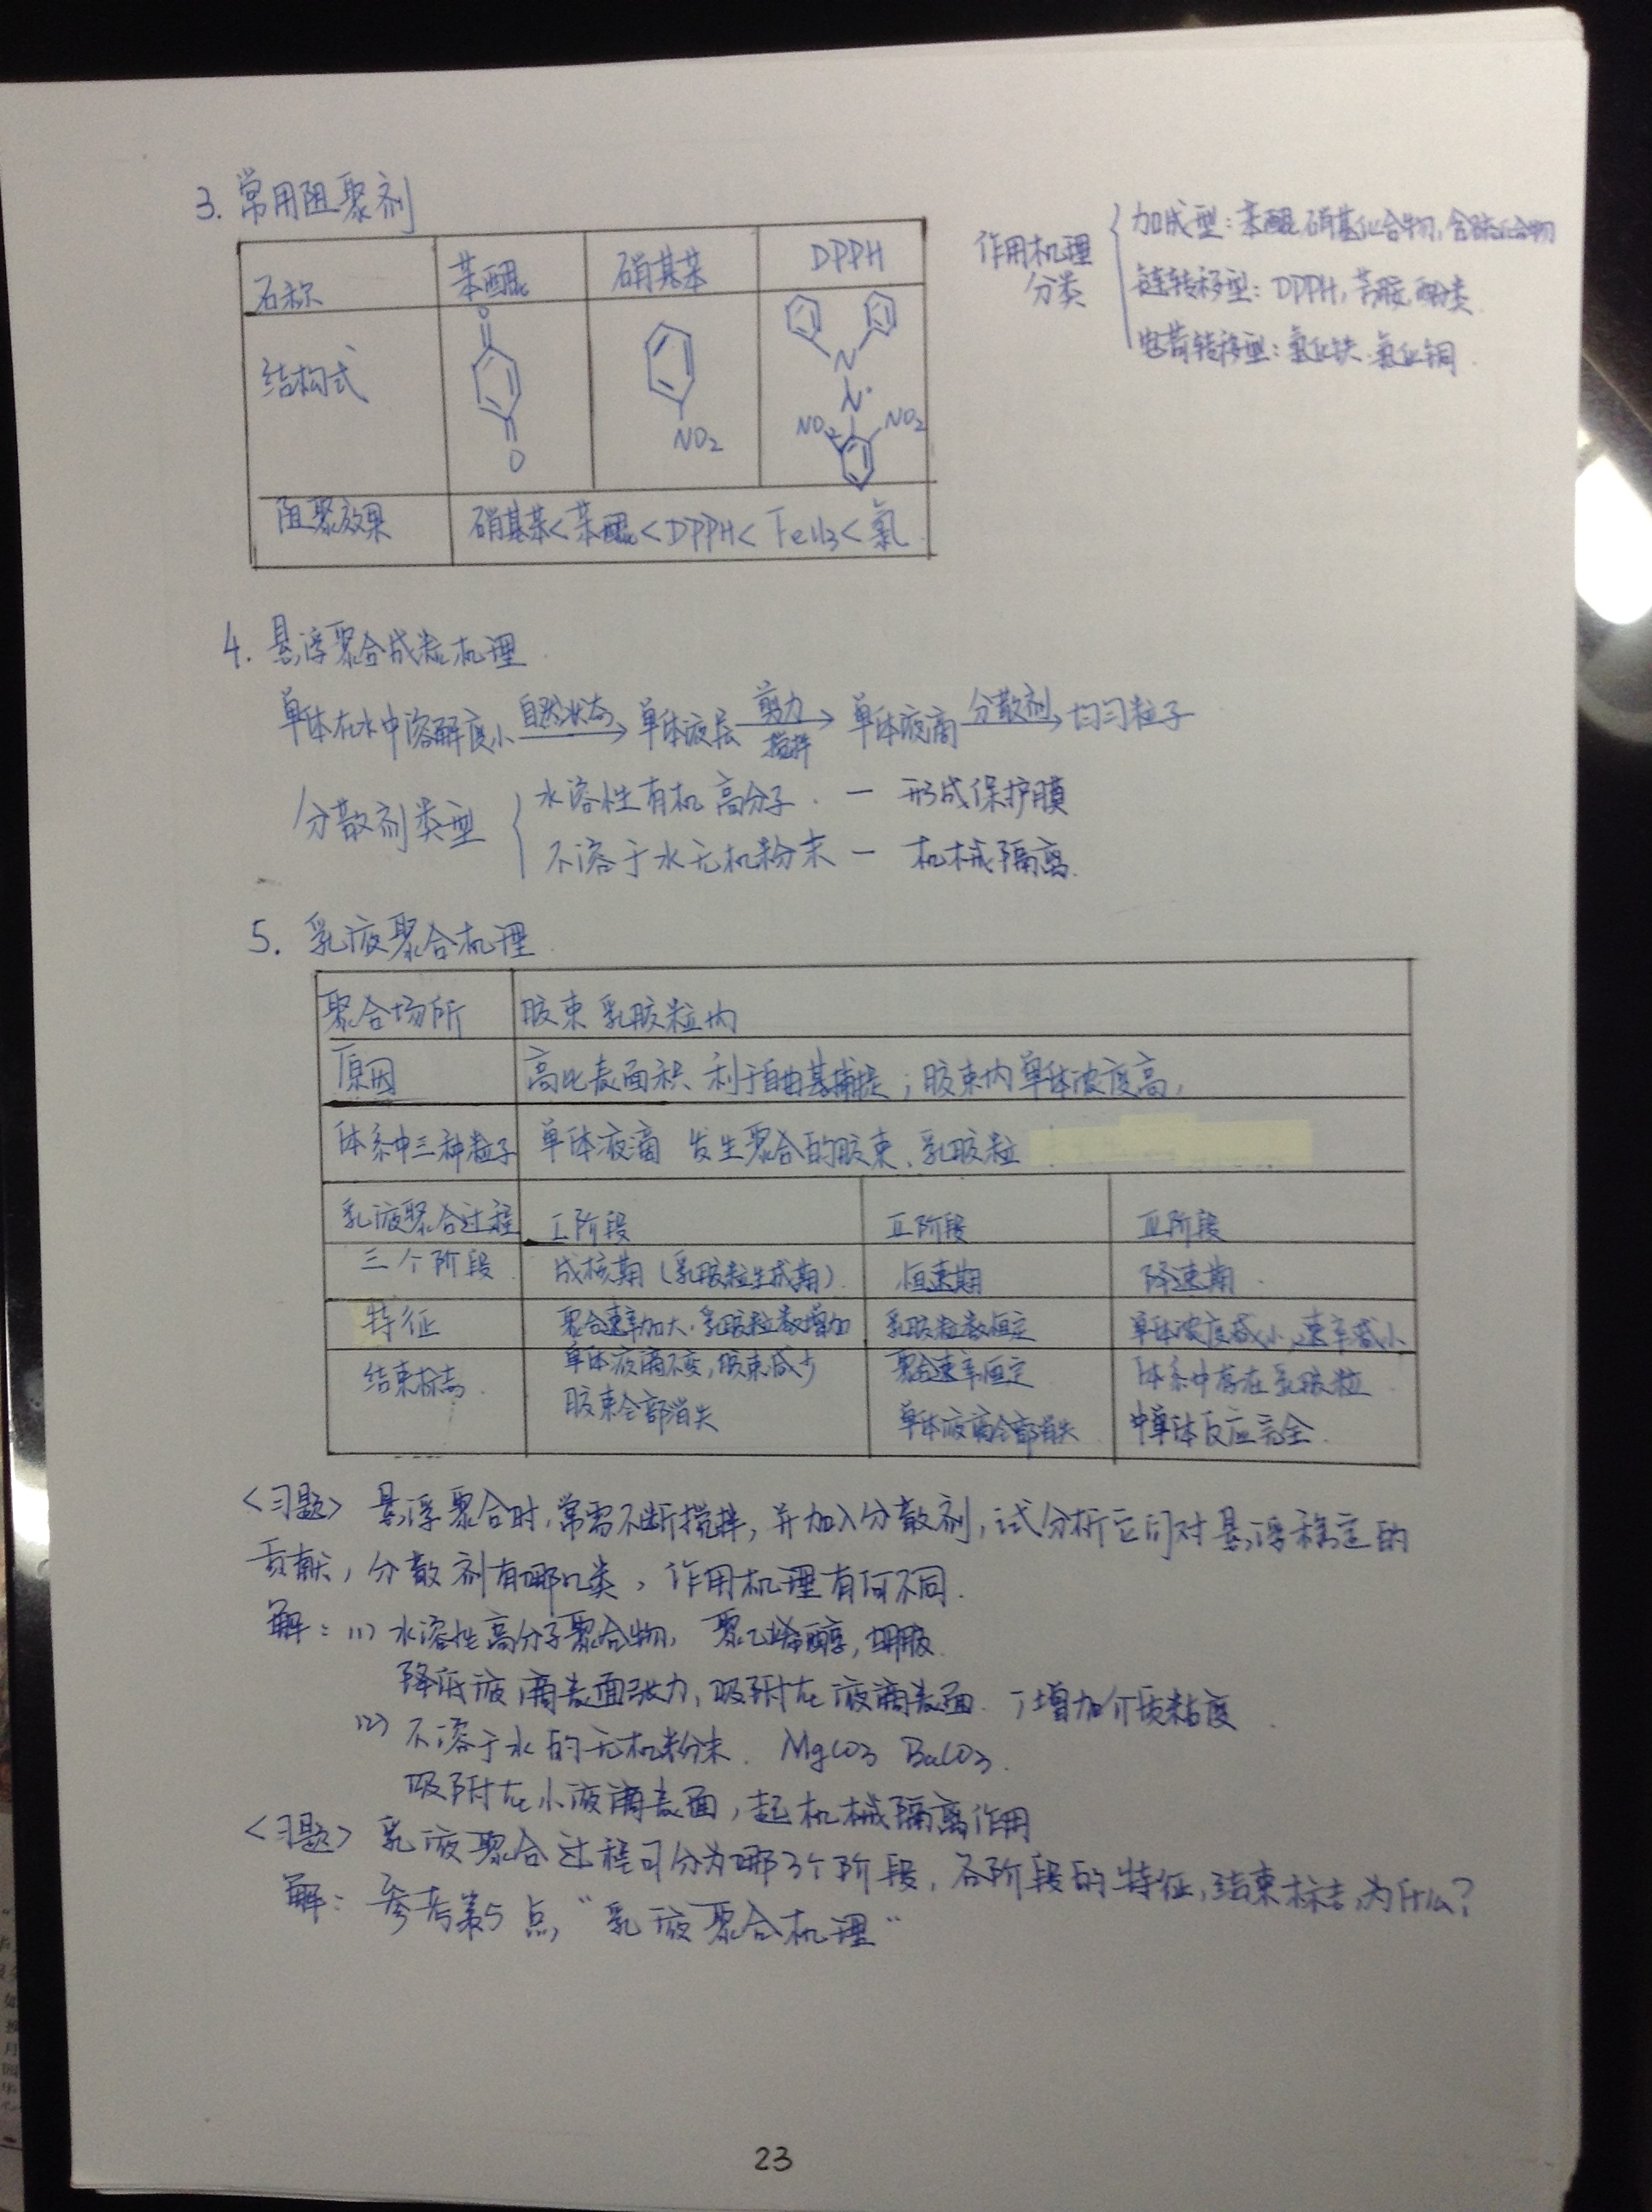 3. 常用阻聚剂
名称 苯醌 硝基苯 DPPH
结构式
O
O
NO2
N
N·
NO2 NO2
阻聚效果 硝基苯<苯醌<DPPH<FeCl3<氧
作用机理分类
加成型：苯醌 硝基化合物，含硫化合物
链转移型：DPPH，芳胺 酚类
电荷转移型：氯化铁 氯化铜
4. 悬浮聚合成粒机理
单体在水中溶解度小 自然状态 单体液层 剪力 搅拌 单体液滴 分散剂 均匀粒子
分散剂类型
水溶性有机高分子 — 形成保护膜
不溶于水无机粉末 — 机械隔离
5. 乳液聚合机理
聚合场所 胶束 乳胶粒内
原因 高比表面积 利于自由基捕捉；胶束内单体浓度高
体系中三种粒子 单体液滴 发生聚合的胶束、乳胶粒
乳液聚合过程 I阶段 II阶段 III阶段
三个阶段 成核期（乳胶粒生成期） 恒速期 降速期
特征 聚合速率加大，乳胶粒数增加 乳胶粒数恒定 单体浓度减小，速率减小
单体液滴不变，胶束减少 聚合速率恒定 体系中存在乳胶粒
结束标志 胶束全部消失 单体液滴全部消失 中单体反应完全
<习题> 悬浮聚合时，常需不断搅拌，并加入分散剂，试分析它们对悬浮稳定的
贡献，分散剂有哪几类，作用机理有何不同.
解：(1) 水溶性高分子聚合物，聚乙烯醇，明胶
降低液滴表面张力，吸附在液滴表面，增加介质粘度
(2) 不溶于水的无机粉末. MgCO3 BaCO3.
吸附在小液滴表面，起机械隔离作用
<习题> 乳液聚合过程可分为哪3个阶段，各阶段的特征，结束标志，为什么？
解：参考第5点 “乳液聚合机理”
23